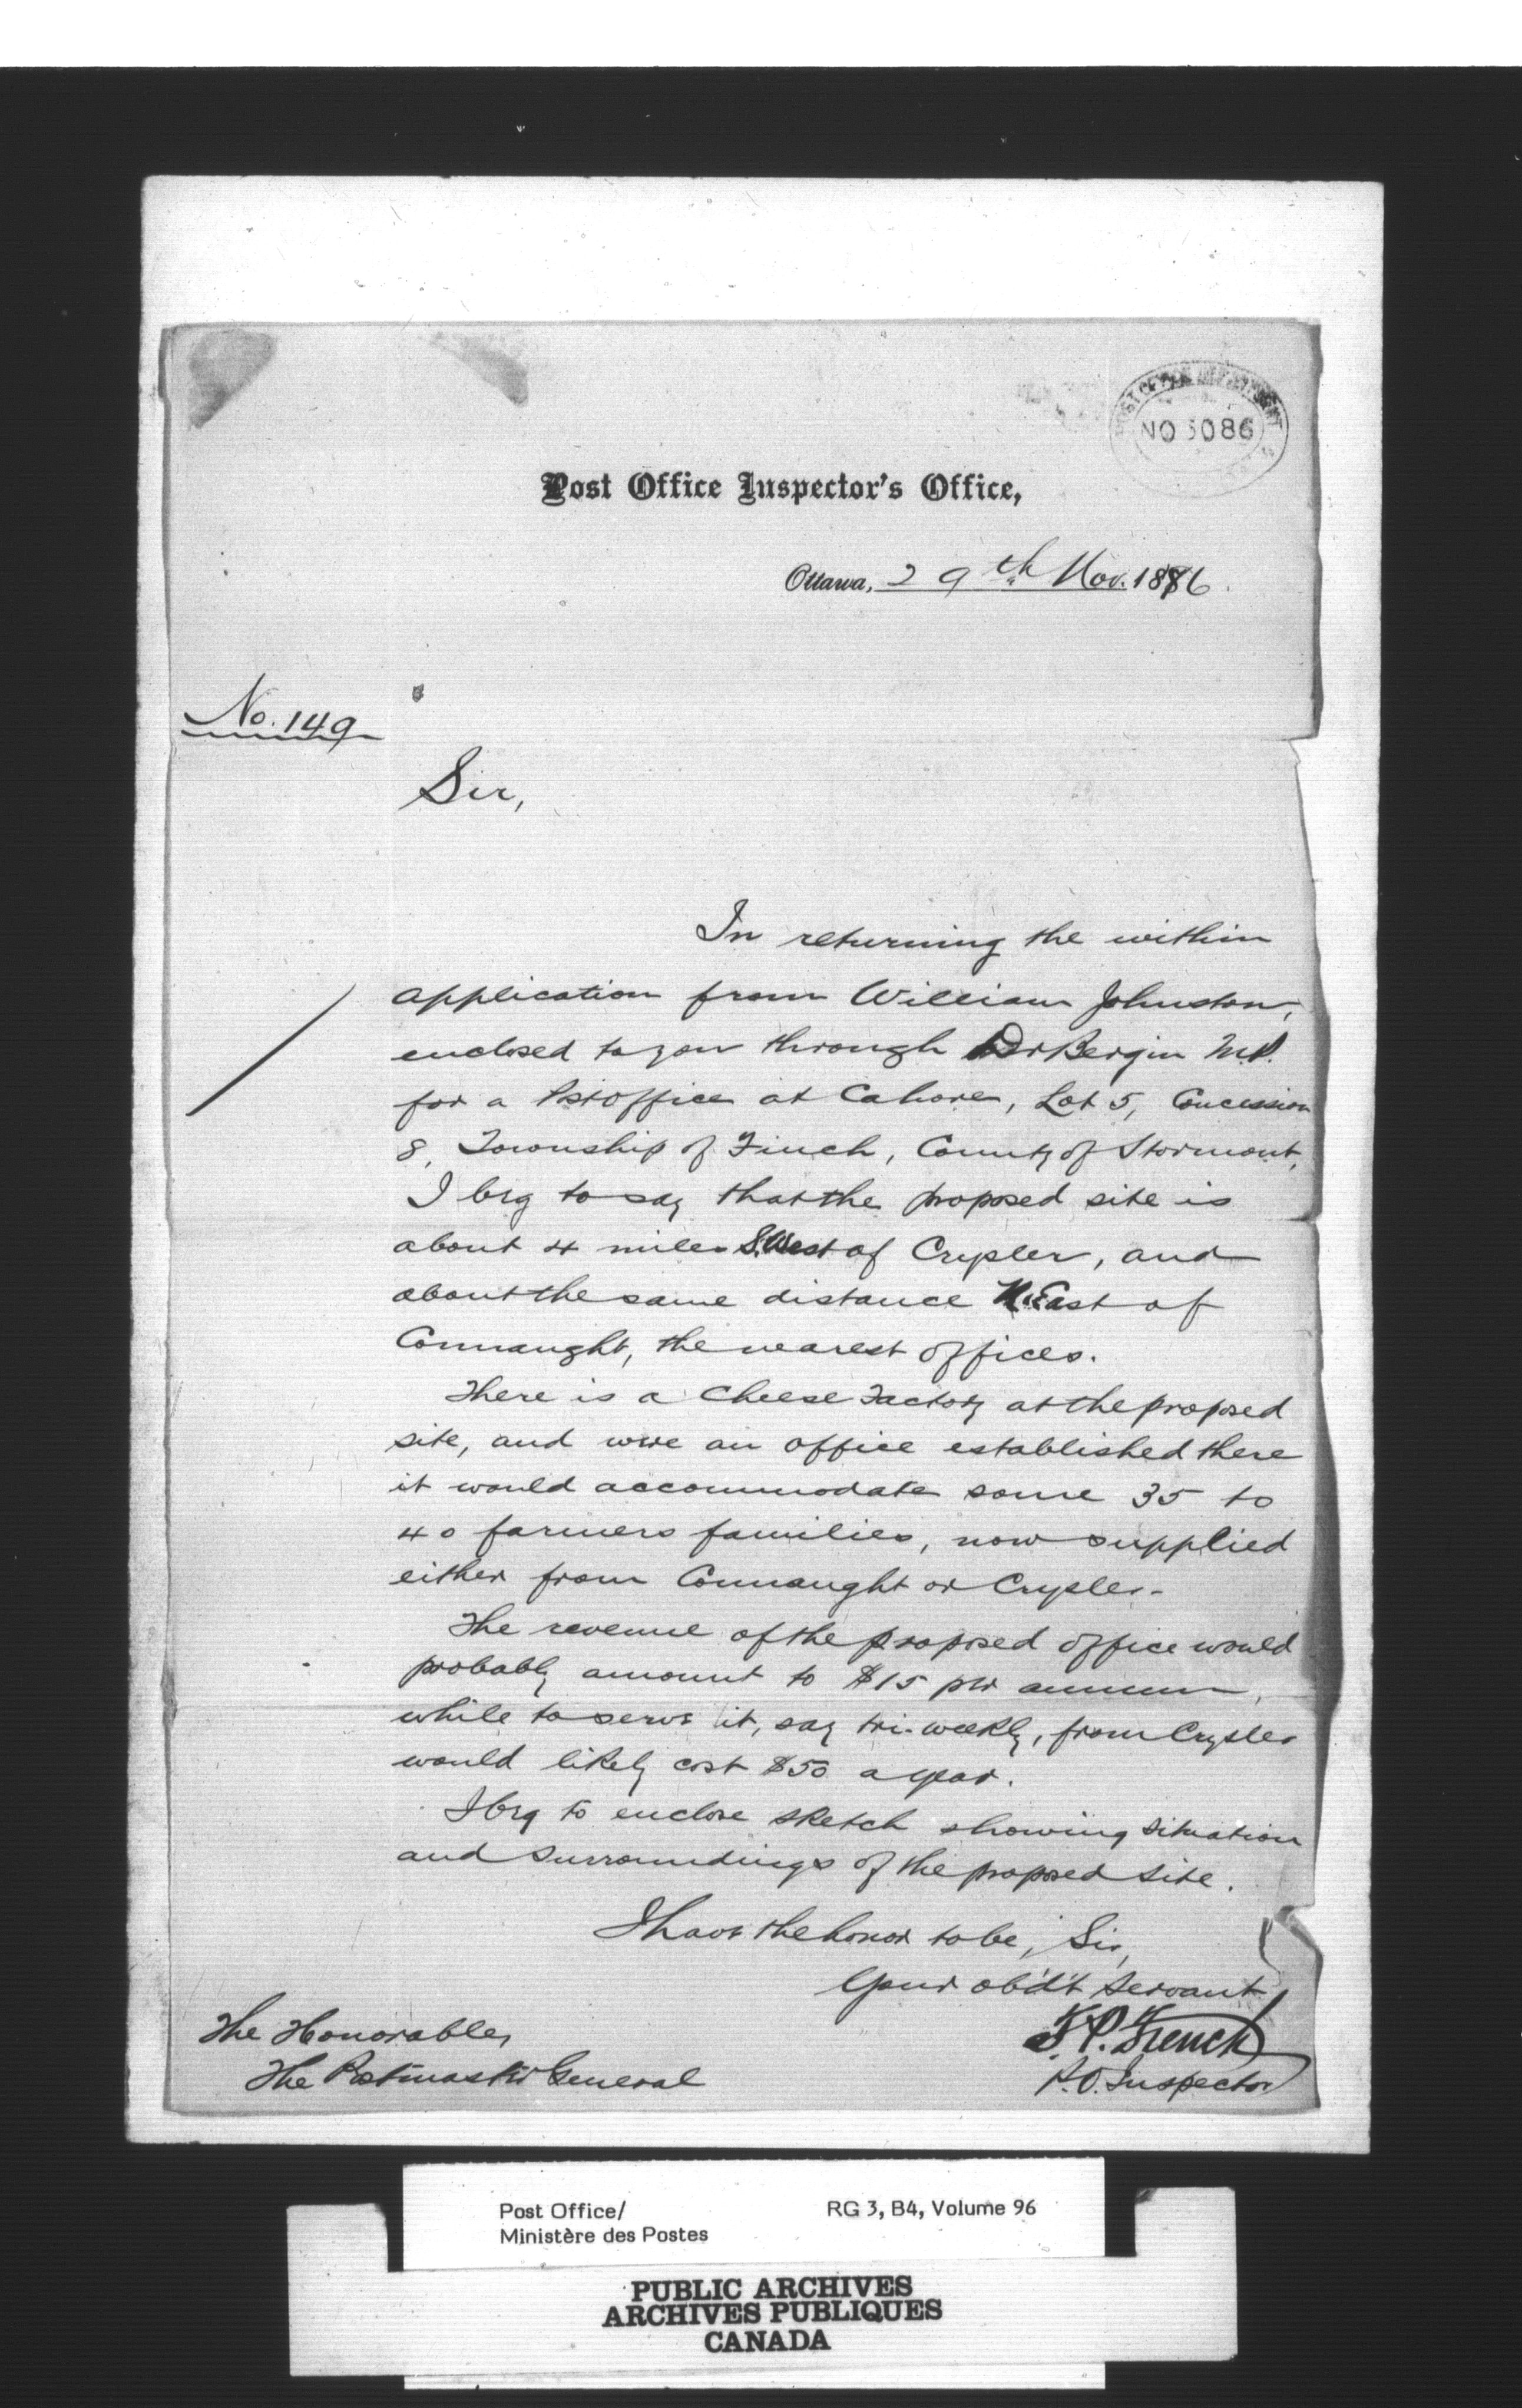 NO 5086
Post Office Inspector's Office,
Ottawa, 29th Nov. 1886.
No. 149
Sir,
In returning the within
application from William Johnston,
enclosed to you through Dr Bergin M.P.
for a Post Office at Cahore, Lot 5, Concession
8, Township of Finch, County of Stormont,
I beg to say that the proposed site is
about 4 miles S.West of Crysler, and
about the same distance N.East of
Connaught, the nearest offices.
There is a Cheese Factory at the proposed
site, and were an office established there
it would accommodate some 35 to
40 farmers families, now supplied
either from Connaught or Crysler.
The revenue of the proposed office would
probably amount to $15 per annum,
while to serve it, say tri-weekly, from Crysler
would likely cost $50 a year.
I beg to enclose sketch showing situation
and surroundings of the proposed site.
I have the honor to be, Sir,
Your ob'd't servant
F.P. French
P.O. Inspector
The Honorable,
The Postmaster General
Post Office/
Ministère des Postes
RG 3, B4, Volume 96
PUBLIC ARCHIVES
ARCHIVES PUBLIQUES
CANADA